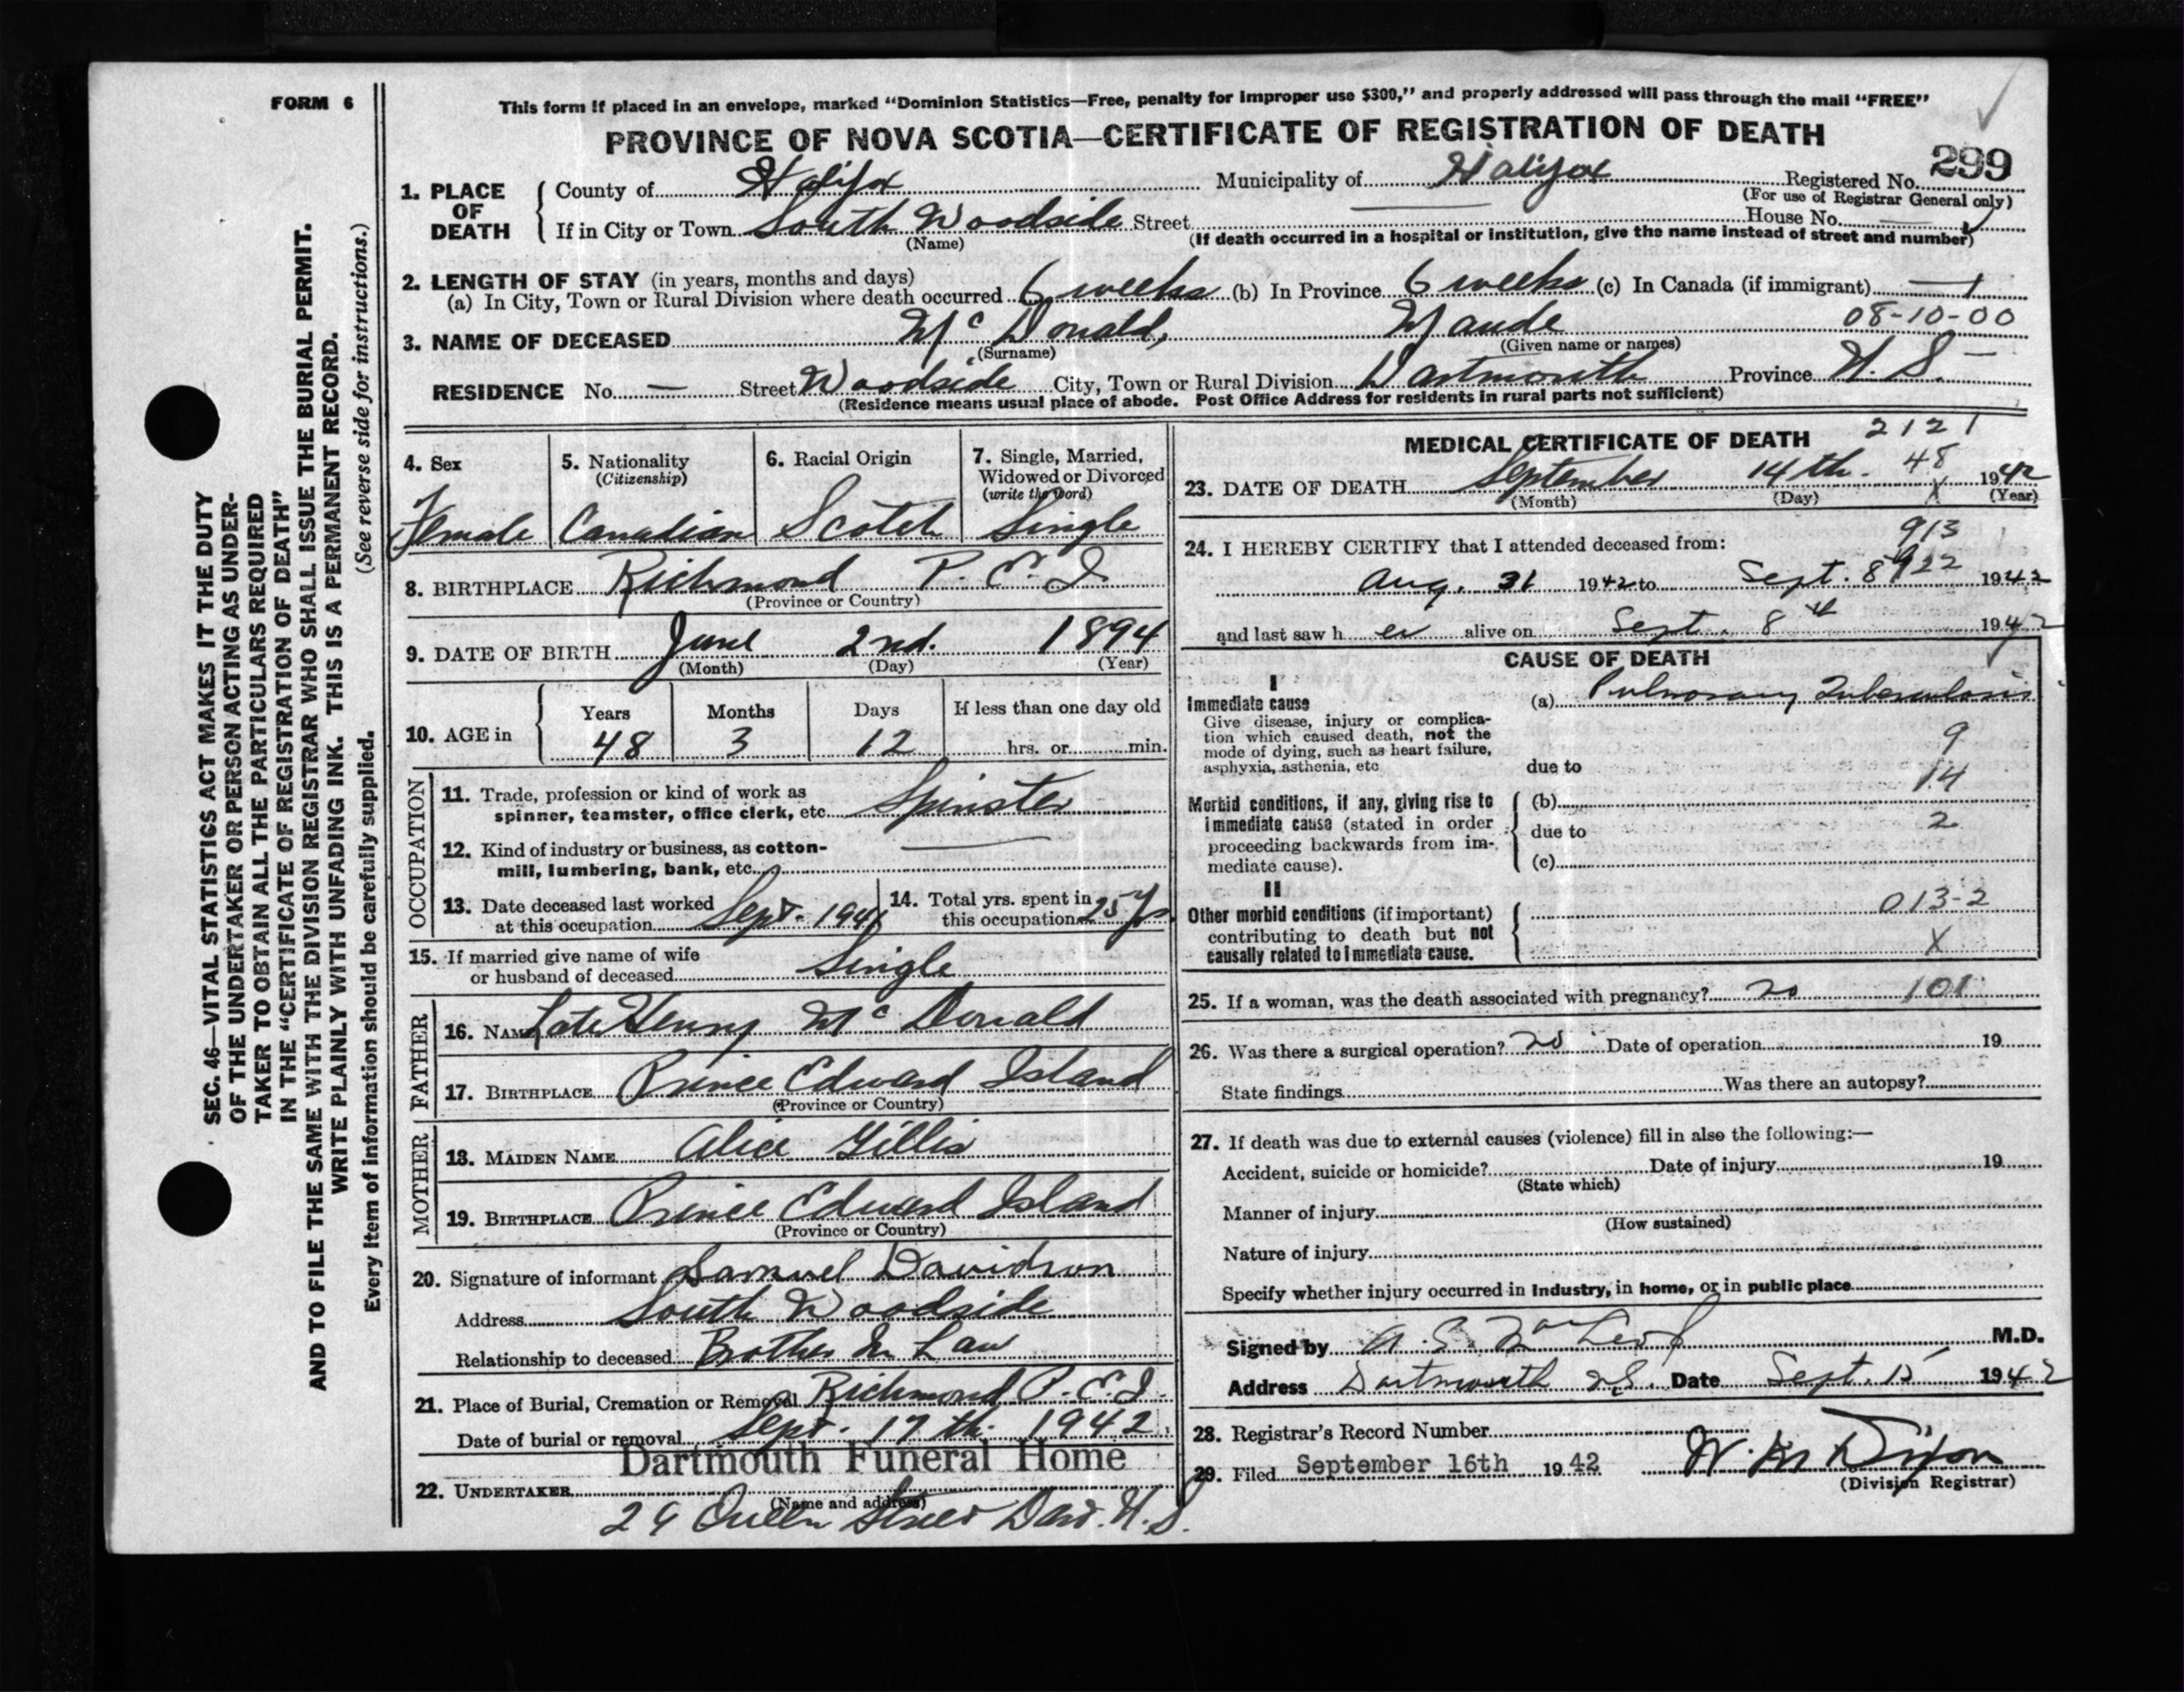 FORM 6
This form if placed in an envelope, marked “Dominion Statistics—Free, penalty for improper use $300,” and properly addressed will pass through the mail “FREE”
PROVINCE OF NOVA SCOTIA—CERTIFICATE OF REGISTRATION OF DEATH
299
1. PLACE OF DEATH
County of Halifax Municipality of Halifax Registered No.
(For use of Registrar General only)
If in City or Town South Woodside Street — House No. —
(Name) (If death occurred in a hospital or institution, give the name instead of street and number)
2. LENGTH OF STAY (in years, months and days)
(a) In City, Town or Rural Division where death occurred 6 weeks (b) In Province 6 weeks (c) In Canada (if immigrant) —
08-10-00
3. NAME OF DECEASED Mc Donald, Maude
(Surname) (Given name or names)
RESIDENCE No. — Street Woodside City, Town or Rural Division Dartmouth Province N. S. —
(Residence means usual place of abode. Post Office Address for residents in rural parts not sufficient)
4. Sex 5. Nationality 6. Racial Origin 7. Single, Married,
(Citizenship) Widowed or Divorced
(write the word)
Female Canadian Scotch Single
8. BIRTHPLACE Richmond P. E. I.
(Province or Country)
9. DATE OF BIRTH June 2nd. 1894
(Month) (Day) (Year)
10. AGE in Years Months Days If less than one day old
48 3 12 hrs. or min.
OCCUPATION
11. Trade, profession or kind of work as
spinner, teamster, office clerk, etc. Spinster
12. Kind of industry or business, as cotton-
mill, lumbering, bank, etc. —
13. Date deceased last worked
at this occupation Sept. 1941
14. Total yrs. spent in
this occupation 25 Yrs
15. If married give name of wife
or husband of deceased Single
FATHER
16. NAME Late Henry Mc Donald
17. BIRTHPLACE Prince Edward Island
(Province or Country)
MOTHER
18. MAIDEN NAME Alice Gillis
19. BIRTHPLACE Prince Edward Island
(Province or Country)
20. Signature of informant Samuel Davidson
Address South Woodside
Relationship to deceased Brother In Law
21. Place of Burial, Cremation or Removal Richmond P. E. I.
Date of burial or removal Sept. 17th. 1942.
Dartmouth Funeral Home
22. UNDERTAKER
(Name and address)
Queen Street Dart. N. S.
MEDICAL CERTIFICATE OF DEATH 2121
48
23. DATE OF DEATH September 14th. 1942
X
(Month) (Day) (Year)
24. I HEREBY CERTIFY that I attended deceased from: 913
922
Aug. 31 1942 to Sept. 8 1942
and last saw her alive on Sept. 8th 1942
CAUSE OF DEATH
I
Immediate cause (a) Pulmonary Tuberculosis
Give disease, injury or complica-
tion which caused death, not the
mode of dying, such as heart failure,
asphyxia, asthenia, etc.
9
due to
14
Morbid conditions, if any, giving rise to (b)
immediate cause (stated in order due to 2
proceeding backwards from im-
mediate cause). (c)
II
013-2
Other morbid conditions (if important)
contributing to death but not
causally related to immediate cause. X
25. If a woman, was the death associated with pregnancy? no 101
26. Was there a surgical operation? no Date of operation 19
State findings Was there an autopsy?
27. If death was due to external causes (violence) fill in also the following:—
Accident, suicide or homicide? Date of injury 19
(State which)
Manner of injury
(How sustained)
Nature of injury
Specify whether injury occurred in industry, in home, or in public place
Signed by M.D.
Address Dartmouth N.S. Date Sept. 15, 1942
28. Registrar's Record Number
29. Filed September 16th 1942 Dixon
(Division Registrar)
SEC. 46—VITAL STATISTICS ACT MAKES IT THE DUTY
OF THE UNDERTAKER OR PERSON ACTING AS UNDER-
TAKER TO OBTAIN ALL THE PARTICULARS REQUIRED
IN THE “CERTIFICATE OF REGISTRATION OF DEATH”
AND TO FILE THE SAME WITH THE DIVISION REGISTRAR WHO SHALL ISSUE THE BURIAL PERMIT.
WRITE PLAINLY WITH UNFADING INK. THIS IS A PERMANENT RECORD.
(See reverse side for instructions.)
Every item of information should be carefully supplied.